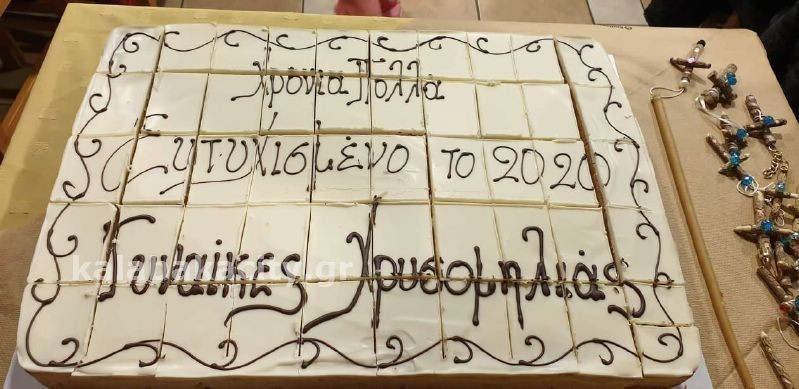 Χρόνια Πολλά
Ευτυχισμένο το 2020
Γυναίκες Χρυσομηλιάς
kalabakacity.gr